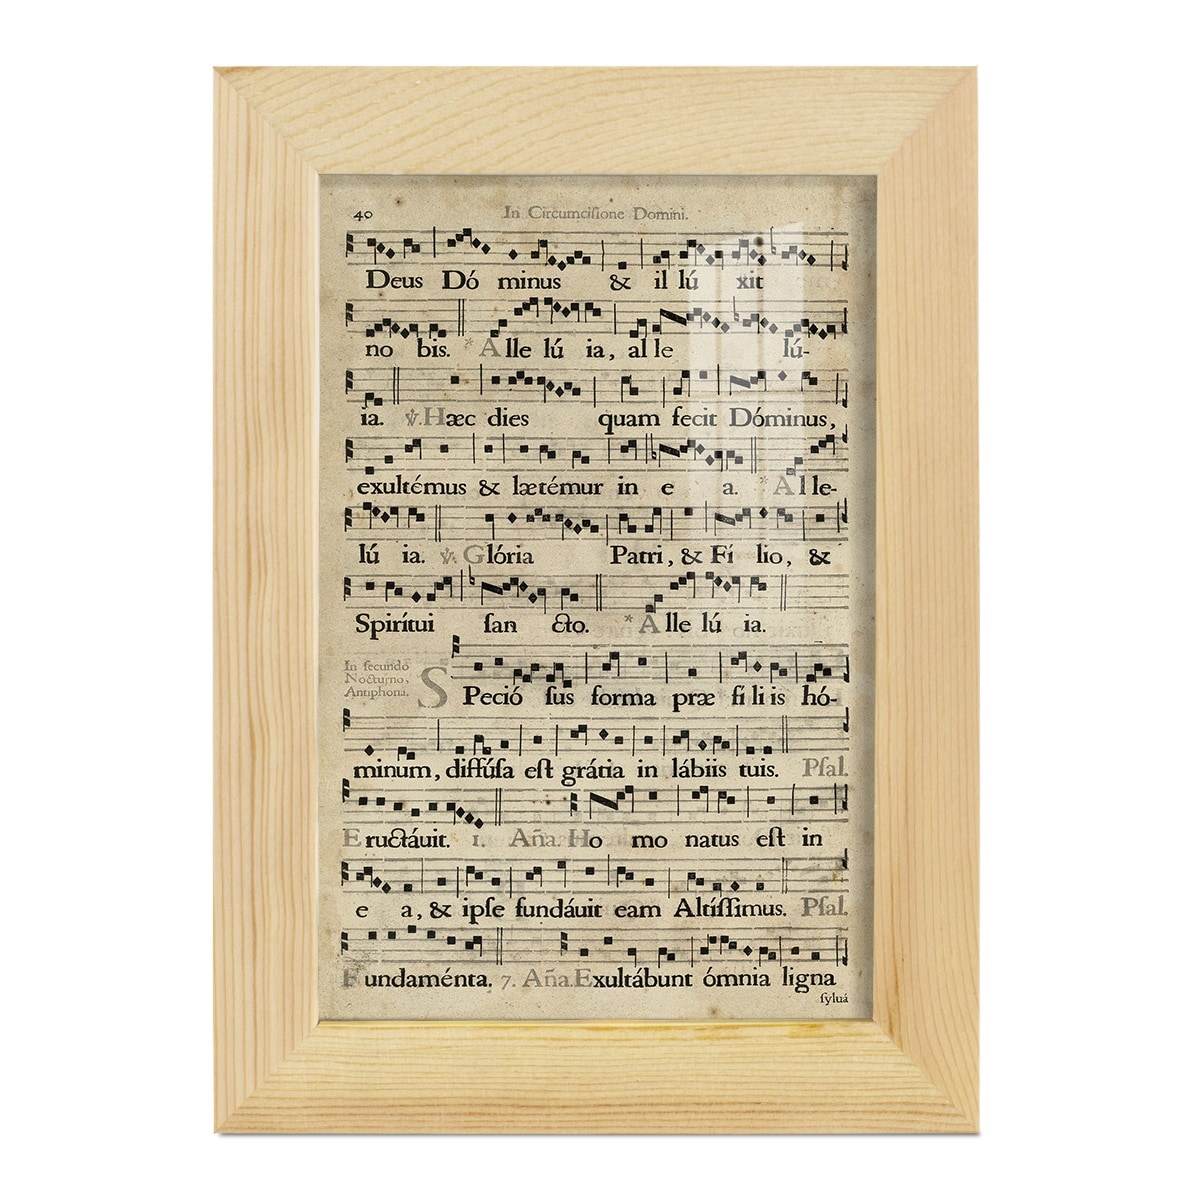 40 In Circumciſione Domini.
Deus Dó minus & il lú xit
no bis. * Alle lú ia, al le lú-
ia. ℣. Hæc dies quam fecit Dóminus,
exultémus & lætémur in e a. * Alle-
lú ia. ℣. Glória Patri, & Fí lio, &
Spirítui ſan cto. * Alle lú ia.
In ſecundo
Nocturno,
Antiphona.
SPeció ſus forma præ fi li is hó-
minum, diffúſa eſt grátia in lábiis tuis. Pſal.
Eructáuit. 1. Aña. Ho mo natus eſt in
e a, & ipſe fundáuit eam Altíſſimus. Pſal.
Fundaménta. 7. Aña. Exultábunt ómnia ligna
ſyluá